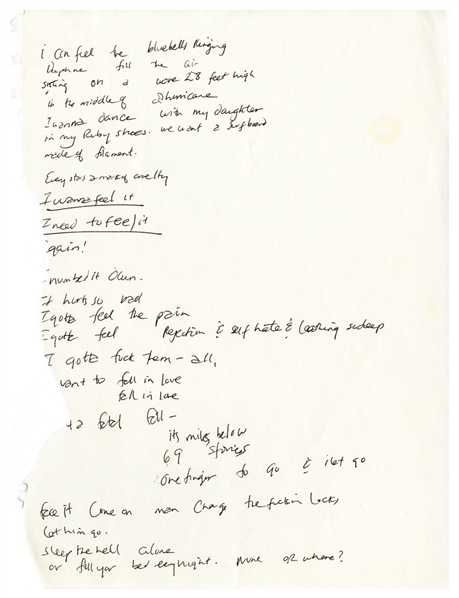 i can feel the bluebells Ringing
fill the air
sitting on a wave 28 feet high
in the middle of a Hurricane
I wanna dance with my daughter
in my Ruby shoes. we want a surfboard
made of filament.
Every stars a mark of cruelty
I wanna feel it
I need to feel it
again!
I numbed it down.
It hurts so bad
I gotta feel the pain
I gotta feel Rejection & self hate & loathing so deep
I gotta fuck them - all,
want to fall in love
fall in love
fatal fall -
its miles below
69 stories
one finger to go & i let go
face it Come on man Change the fuckin Locks
Let him go.
sleep the hell alone
or fill your bed every night. mine or where?